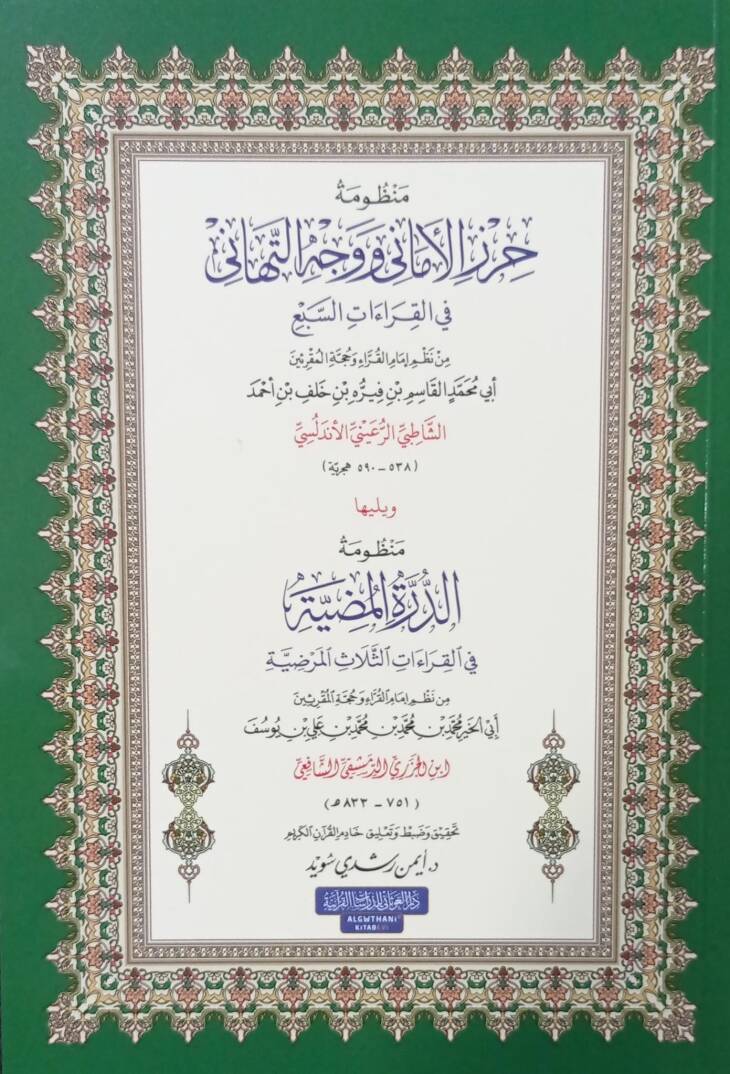 مَنْظُومَةُ
حِرْزِ الأَمَانِي وَوَجْهِ التَّهَانِي
فِي القِرَاءَاتِ السَّبْعِ
مِنْ نَظْمِ إِمَامِ القُرَّاءِ وَحُجَّةِ المُقْرِئِينَ
أَبِي مُحَمَّدٍ القَاسِمِ بْنِ فِيرُّه بْنِ خَلَفِ بْنِ أَحْمَدَ
الشَّاطِبِيِّ الرُّعَيْنِيِّ الأَنْدَلُسِيِّ
(٥٣٨ - ٥٩٠ هجريّة)
ويليها
مَنْظُومَةُ
الدُّرَّةِ المُضِيَّةِ
فِي القِرَاءَاتِ الثَّلَاثِ المَرْضِيَّةِ
مِن نَظْمِ إِمَامِ القُرَّاءِ وَحُجَّةِ المُقْرِئِينَ
أَبِي الخَيْرِ مُحَمَّدِ بْنِ مُحَمَّدِ بْنِ مُحَمَّدِ بْنِ عَلِيِّ بْنِ يُوسُفَ
ابْنِ الجَزَرِيِّ الدِّمَشْقِيِّ الشَّافِعِيِّ
(٧٥١ - ٨٣٣ هـ)
تَحْقِيق وَضَبْط وَتَعْلِيق خَادِمِ القُرْآنِ الكَرِيمِ
د. أيمن رشدي سُوَيد
دَار الغَوثَانِي لِلدِّرَاسَاتِ القُرْآنِيَّةِ
ALGWTHANI
KITABEVI